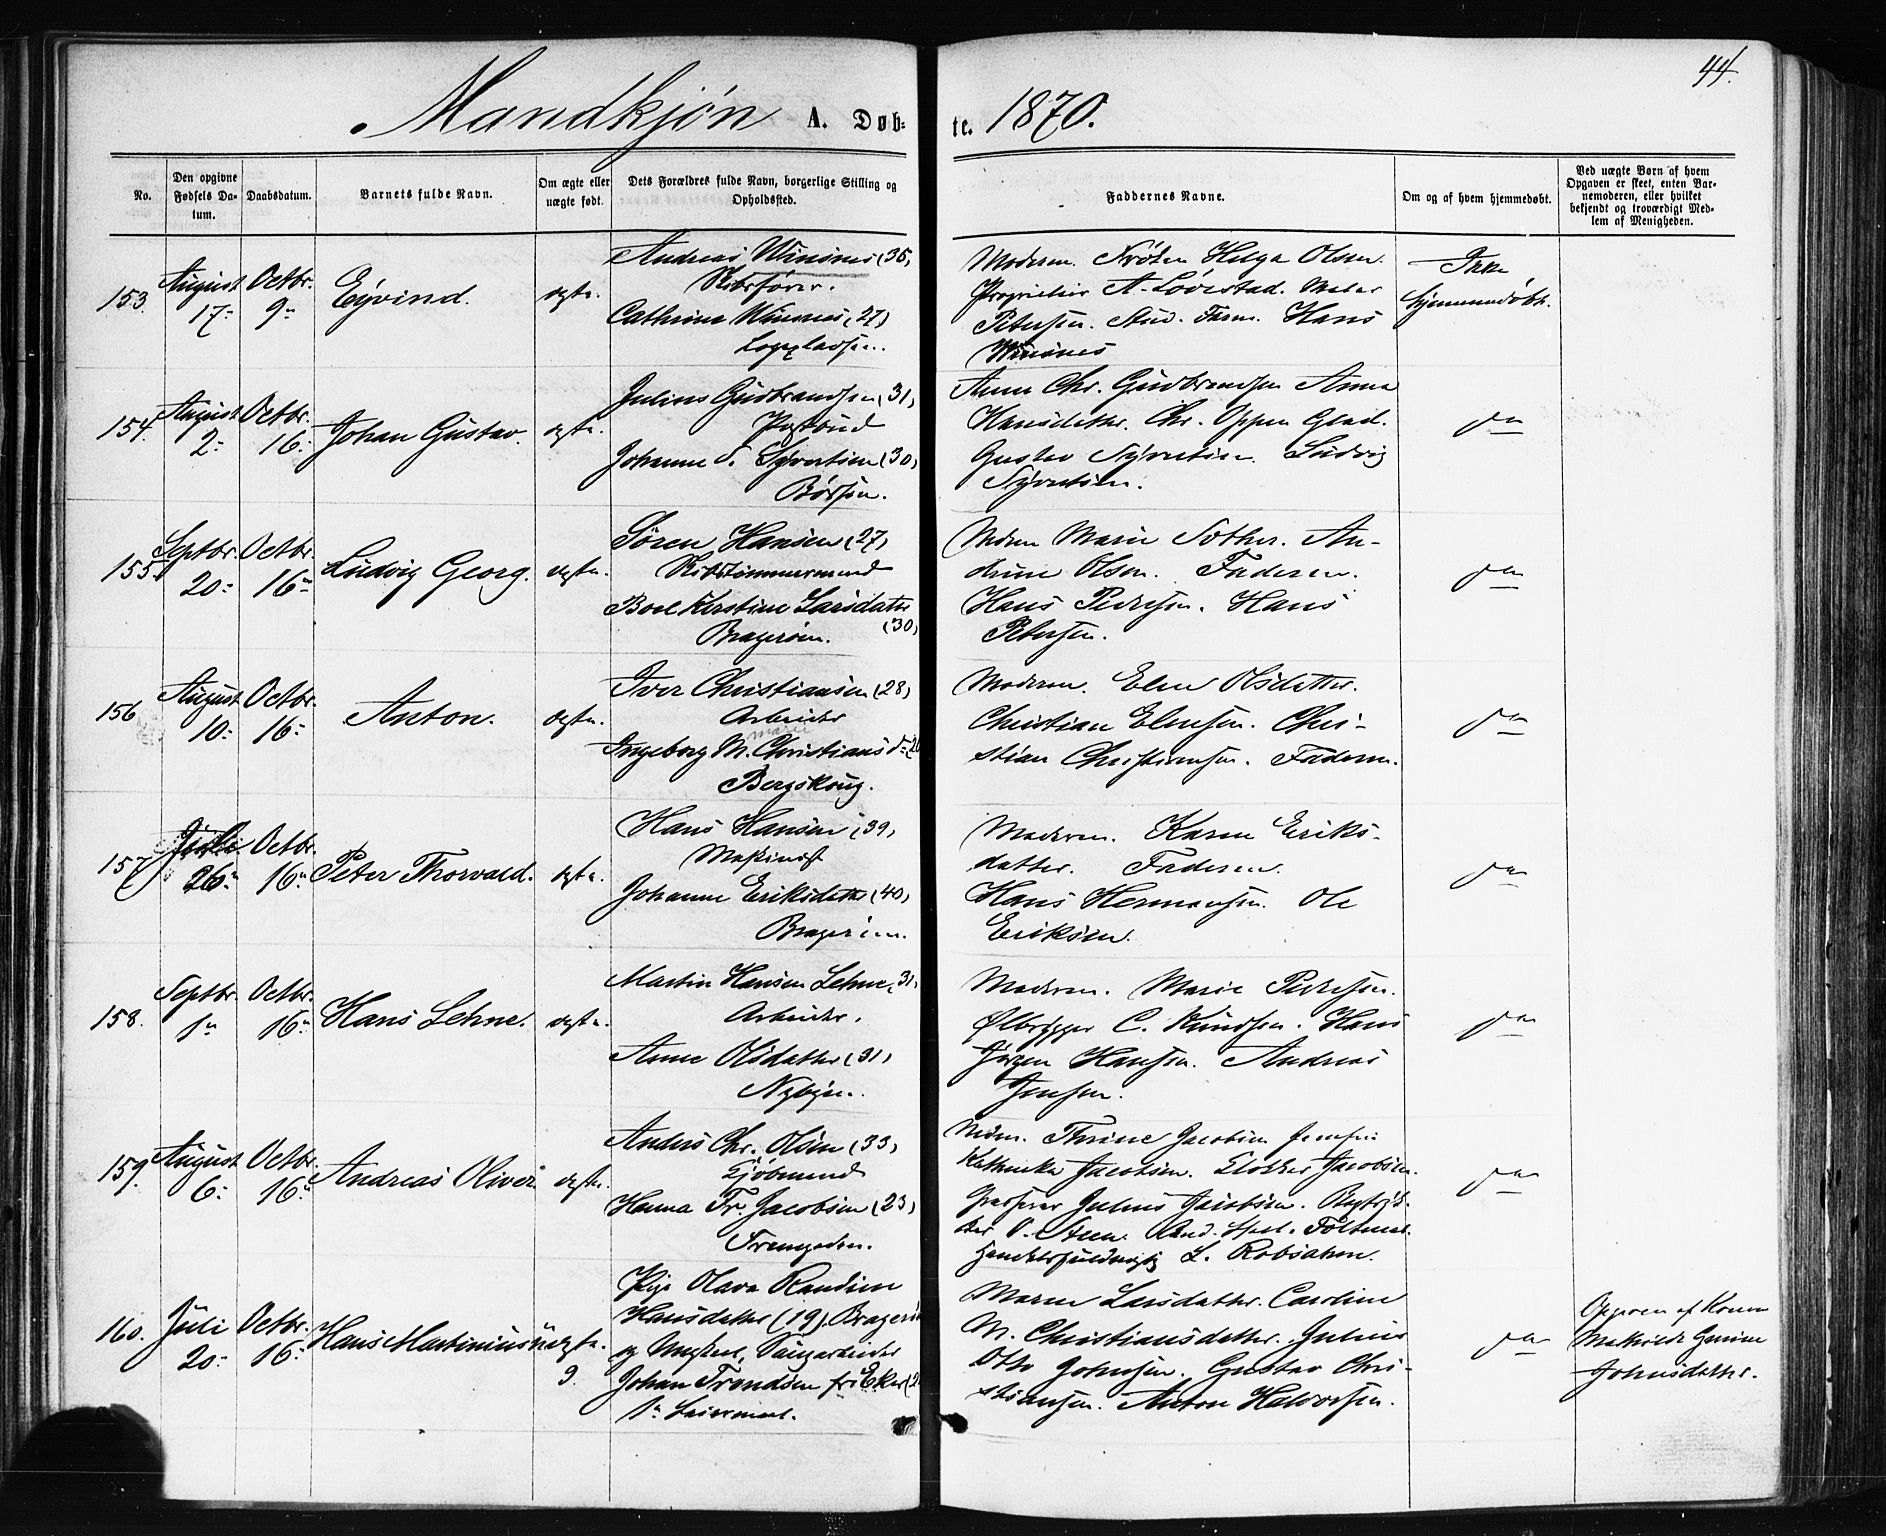 Mandkjön A. Døb- te. 1870.
44.
No.
Den opgivne Fødsels Da-tum.
Daabsdatum.
Barnets fulde Navn.
Om ægte eller uægte født.
Dets Forældres fulde Navn, borgerlige Stilling og Opholdssted.
Faddernes Navne.
Om og af hvem hjemmedøbt.
Ved uægte Børn af hvem Opgaven er skeet, enten Bar-nemoderen, eller hvilket bekjendt og troværdigt Med-lem af Menigheden.
153.
August 17-
Octbr. 9-
Eyvind.
ægte.
Andreas Winsnes (35)
Skibsfører.
Cathrine Winsnes (27)
Moderen. Frøken Helga Olsen.
Proprietair A. Lövestad. Maler
Petersen. Stud. Farm. Hans
Winsnes
Ikke
hjemmedøbt.
154.
August 2-
Octbr. 16-
Johan Gustav.
ægte.
Julius Gudbrandsen (31)
Postbud
Johanne S. Syvertsen (30)
Børsen.
Anne Chr. Gudbrandsen Anna
Hansdatter. Chr. Oppen Glad.
Gustav Syvertsen. Ludvig
Syvertsen.
do
155
Septbr. 20-
Octbr. 16-
Ludvig Georg.
ægte.
Sören Hansen (27)
Skibstömmermand
Boel Kirstine Larsdatter
(30)
Bragerøen.
Marie Sother. An-
drine Olsen. Faderen.
Hans Pedersen. Hans
Petersen.
do
156
August 10-
Octbr. 16-
Anton.
ægte.
Iver Christiansen (28)
Arbeider
marie
Ingeborg M. Christians d-
Bergskoug.
Moderen. Elen Olsdatter.
Christian Elensen. Chri-
stian Christiansen. Faderen.
do
157
Juli 26-
Octbr. 16-
Peter Thorvald.
ægte.
Hans Hansen (39)
Maskinist
Johanne Eriksdatter (40)
Bragerøen.
Moderen. Karen Eriks-
datter. Faderen.
Hans Hermansen. Ole
Eriksen.
do
158.
Septbr. 1-
Octbr. 16-
Hans Lehne.
ægte.
Martin Hansen Lehne (31)
Arbeider.
Anne Olsdatter (31)
Nybyen.
Moderen. Marie Pedersen.
Ølbrygger C. Knudsen. Hans
Jørgen Hansen. Andreas
Jensen.
do
159.
August 6-
Octbr. 16-
Andreas Oliver
ægte.
Anders Chr. Olsen (33)
Kjöbmand
Hanna Fr. Jacobsen (23)
Thrine Jacobsen
Kathinka Jacobsen. Klokker Jacobsen.
Julius Jacobsen.
Steen.
L. Robsahm.
do
160.
Juli 20-
Octbr. 16-
Hans Martinius
uægte.
Pige Olava Randine
Hansdatter (19) Bragerøen
og Ungkarl, Saugarbeider
Johan Trondsen fra Eker
1- Leiermaal.
Maren Larsdatter. Caroline
M. Christiansdatter. Julius
Otto Johnsen. Gustav Chri-
stiansen. Anton Halvorsen.
do
Opgaven af Konen
Mathilde
Johnsdatter.